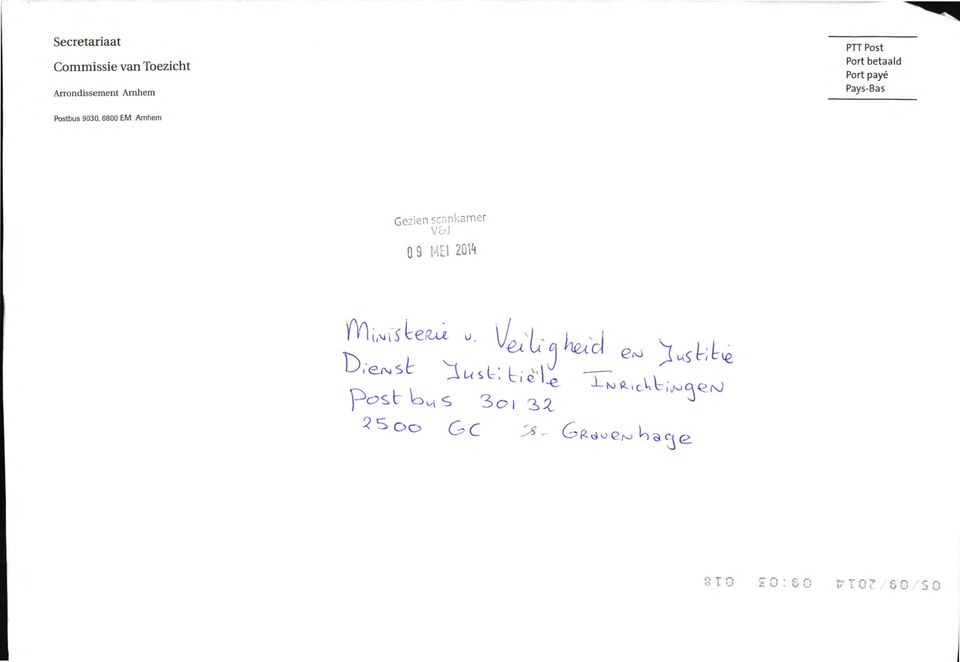 Secretariaat
Commissie van Toezicht
Arrondissement Arnhem
Postbus 9030, 6800 EM Arnhem
PTT Post
Port betaald
Port payé
Pays-Bas
Gezien scankamer
V&J
09 MEI 2014
Ministerie v. Veiligheid en Justitie
Dienst Justitiële Inrichtingen
Postbus 30132
2500 GC 's-Gravenhage
05/09/2014 09:03 018